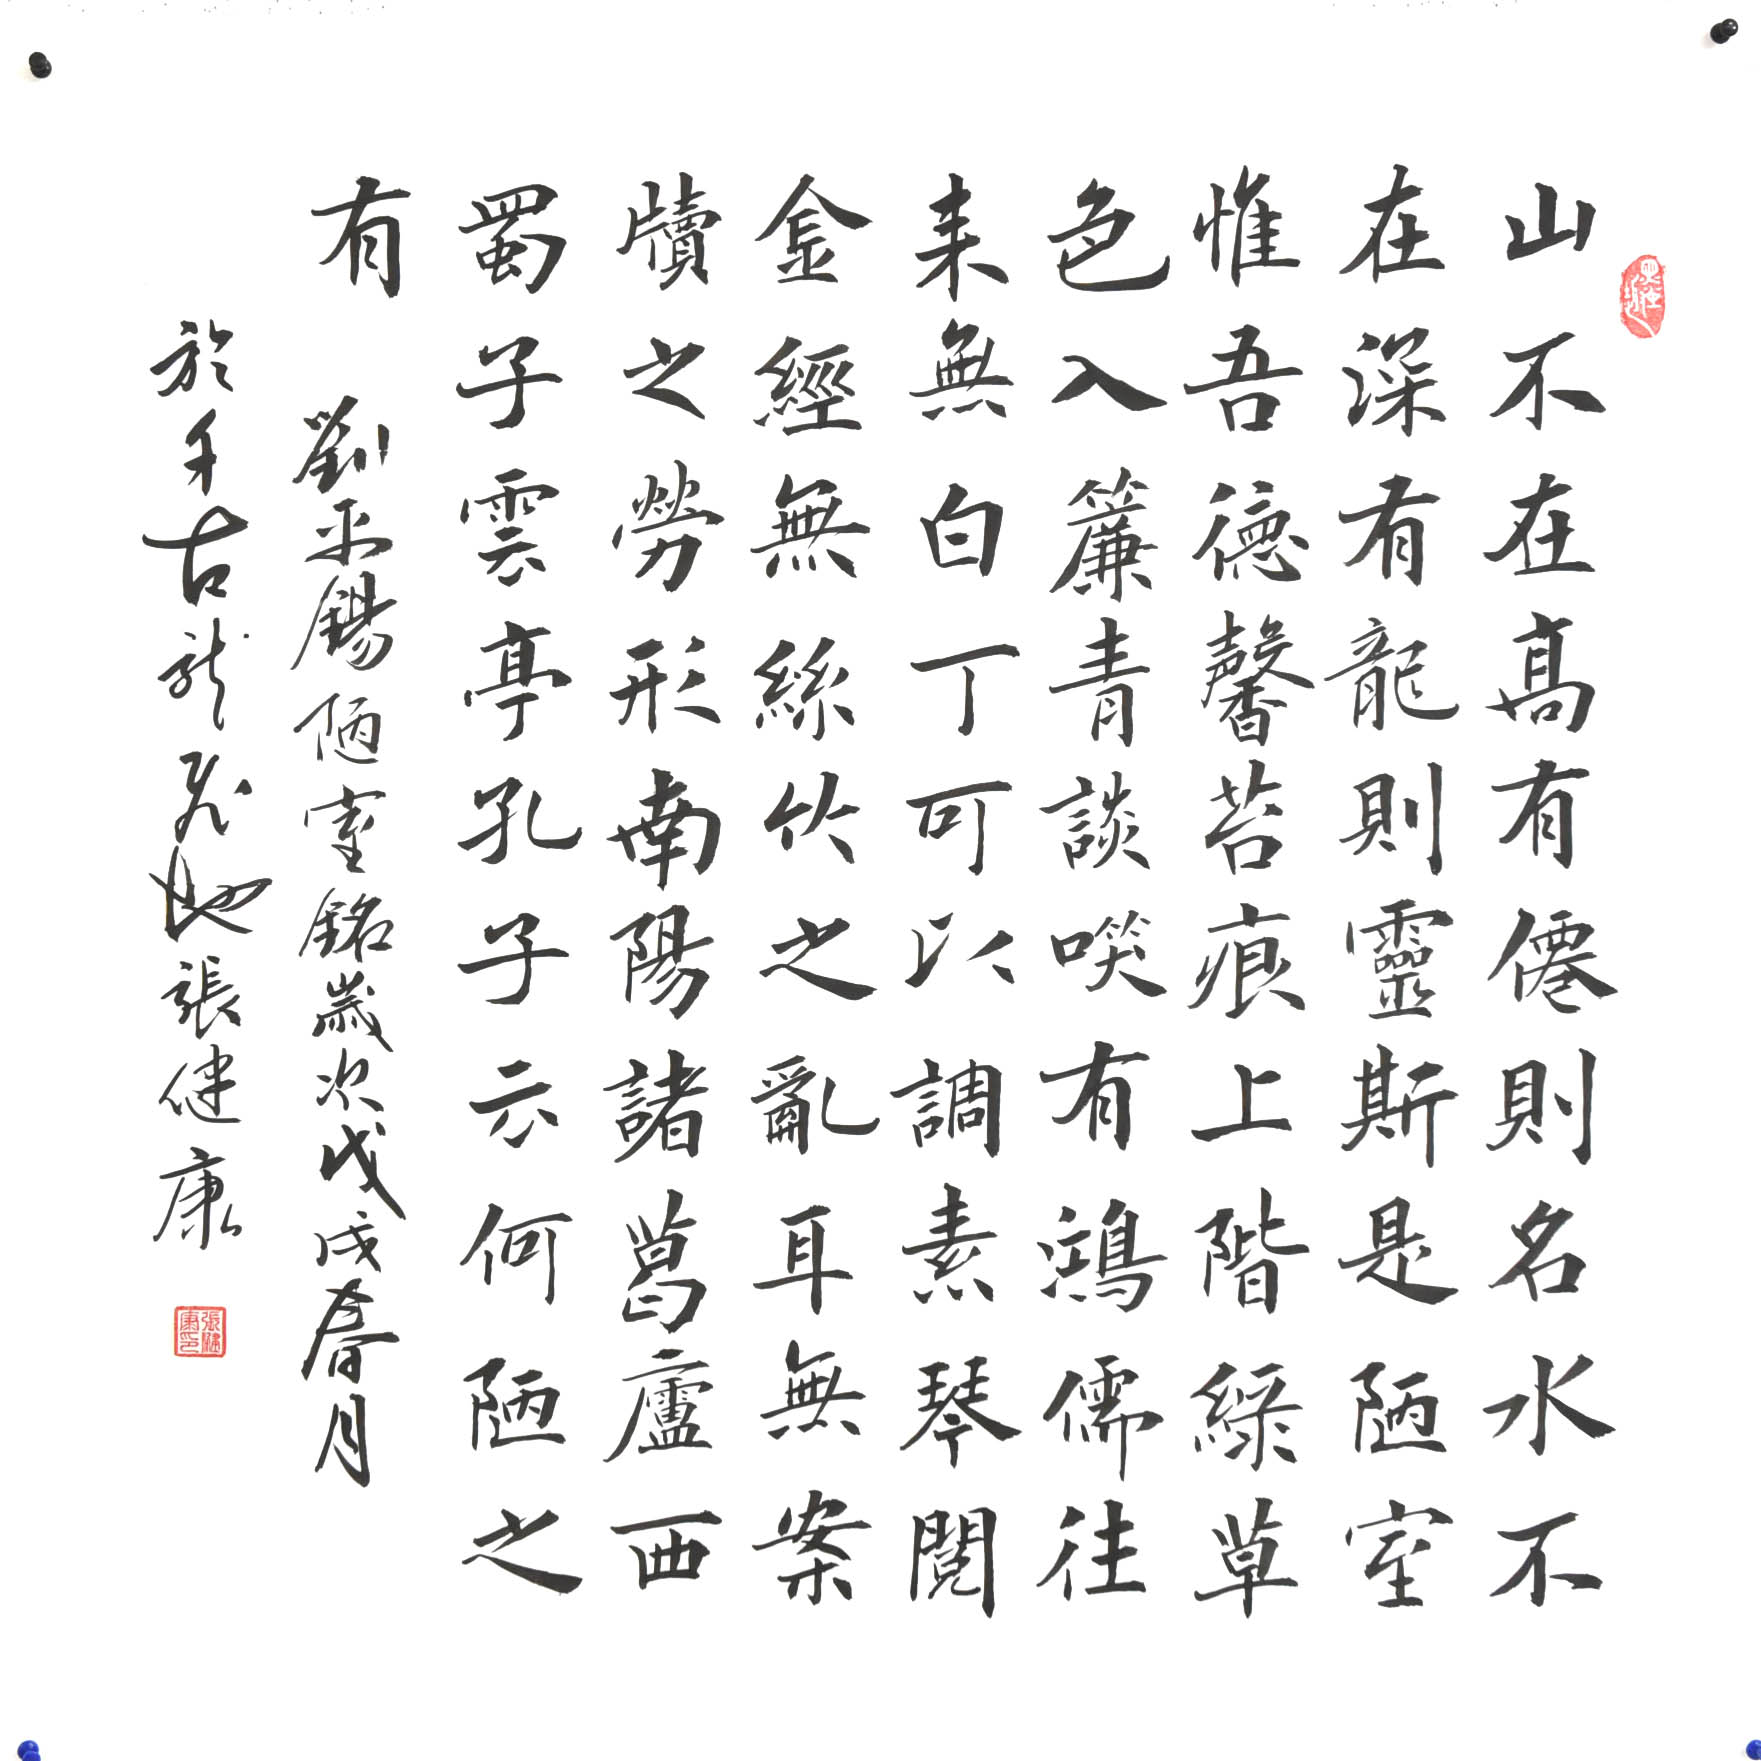 山不在高有僊則名水不
在深有龍則靈斯是陋室
惟吾德馨苔痕上階綠草
色入簾青談咲有鴻儒往
来無白丁可以調素琴閱
金經無絲竹之亂耳無案
牘之勞形南陽諸葛廬西
蜀子雲亭孔子云何陋之
有
劉禹錫陋室銘歲次戊戌春月
於千古龍飛地張健康
張健康印